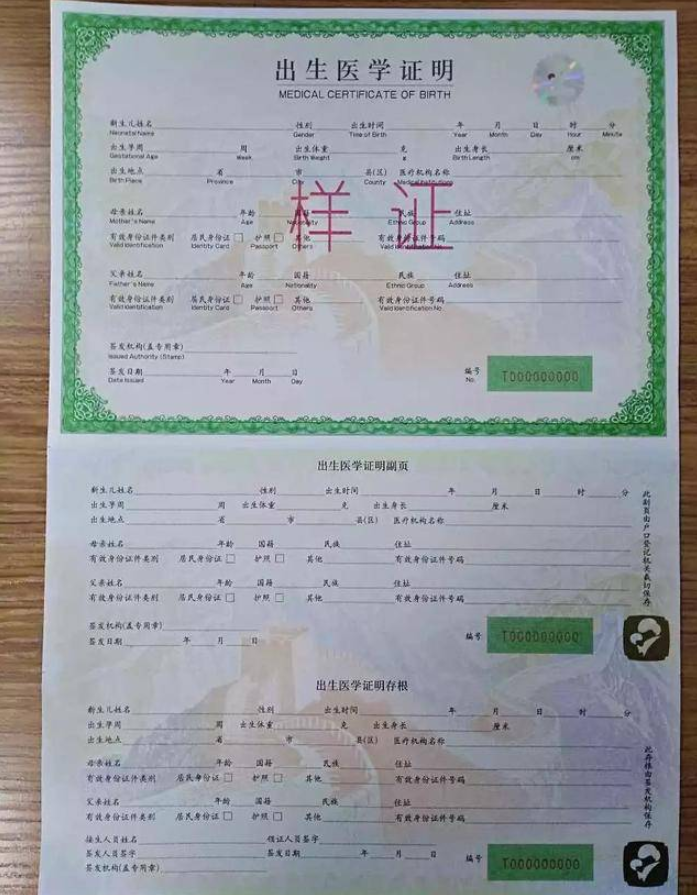 出生医学证明
MEDICAL CERTIFICATE OF BIRTH
新生儿姓名 性别 出生时间 年 月 日 时 分
Neonatal Name Gender Time of Birth Year Month Day Hour Minute
出生孕周 周 出生体重 克 出生身长 厘米
Gestational Age Week Birth Weight g Birth Length cm
出生地点 省 市 县(区) 医疗机构名称
Birth Place Province City County Medical Institution
样证
母亲姓名 年龄 国籍 民族 住址
Mother's Name Age Nationality Ethnic Group Address
有效身份证件类别 居民身份证 护照 其他 有效身份证件号码
Valid Identification Identity Card Passport Others Valid Identification No.
父亲姓名 年龄 国籍 民族 住址
Father's Name Age Nationality Ethnic Group Address
有效身份证件类别 居民身份证 护照 其他 有效身份证件号码
Valid Identification Identity Card Passport Others Valid Identification No.
签发机构(盖专用章)
Issued Authority (Stamp)
签发日期 年 月 日 编号 T000000000
Date Issued Year Month Day No.
出生医学证明副页
新生儿姓名 性别 出生时间 年 月 日 时 分
出生孕周 周 出生体重 克 出生身长 厘米
出生地点 省 市 县(区) 医疗机构名称
母亲姓名 年龄 国籍 民族 住址
有效身份证件类别 居民身份证 护照 其他 有效身份证件号码
父亲姓名 年龄 国籍 民族 住址
有效身份证件类别 居民身份证 护照 其他 有效身份证件号码
签发机构(盖专用章)
签发日期 年 月 日 编号 T000000000
此副页由户口登记机关裁切保存
出生医学证明存根
新生儿姓名 性别 出生时间 年 月 日 时 分
出生孕周 周 出生体重 克 出生身长 厘米
出生地点 省 市 县(区) 医疗机构名称
母亲姓名 年龄 国籍 民族 住址
有效身份证件类别 居民身份证 护照 其他 有效身份证件号码
父亲姓名 年龄 国籍 民族 住址
有效身份证件类别 居民身份证 护照 其他 有效身份证件号码
接生人员姓名 领证人员签字
签发人员签字 签发日期 年 月 日 编号 T000000000
签发机构(盖专用章)
此存根由签发机构保存